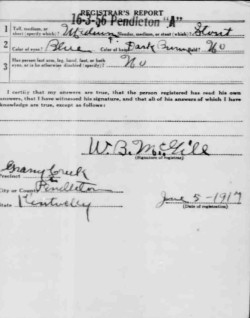 REGISTRAR'S REPORT
16-3-56 Pendleton "A"
1 Tall, medium, or short (specify which)? Medium Slender, medium, or stout (which)? Stout
2 Color of eyes? Blue Color of hair? Dark Brown Bald? No
3 Has person lost arm, leg, hand, foot, or both eyes, or is he otherwise disabled (specify)? No
I certify that my answers are true, that the person registered has read his own answers, that I have witnessed his signature, and that all of his answers of which I have knowledge are true, except as follows:
W. B. McGill
(Signature of registrar)
Precinct Grassy Creek
City or County Pendleton
State Kentucky
June 5 - 1917
(Date of registration)